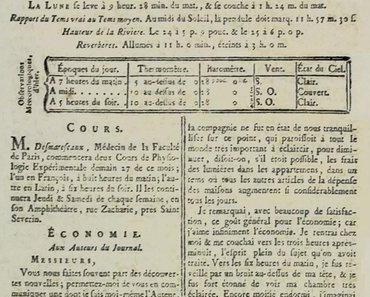 LA LUNE se leve à 9 heur. 28 min. du mat, & se couche à 11 h. 24 m. du mat.
Rapport du Tems vrai au Tems moyen. Au midi du Soleil, la pendule doit marq. 11 h. 57 m. 30 s.
Hauteur de la Riviere. Le 24 à 5 p. 9 pouc. & le 25 à 6 p. 0 p.
Reverbères. Allumés à 11 h. 0 min, éteints à 3 h. 0 m.
Observations Météorologiques, d'hier.
Époques du jour. Thermomètre. Baromètre. Vent. État du Ciel.
A 7 heures du matin. 5 au-dessus de S. Clair.
A midi. S. O. Couvert.
A 5 heures du soir. 10 au-dessus de S. O. Clair.
COURS.
M. Desmareseaux, Médecin de la Faculté
de Paris, commencera deux Cours de Physio-
logie Expérimentale demain 27 de ce mois;
l'un en François, à huit heures du matin; l'au-
tre en Latin, à six heures du soir. Il les conti-
nuera Jeudi & Samedi de chaque semaine, en
son Amphithéâtre, rue Zacharie, près Saint
Severin.
ÉCONOMIE.
Aux Auteurs du Journal.
MESSIEURS,
Vous nous faites souvent part des découver-
tes nouvelles; permettez-moi de vous en com-
muniquer une dont je suis moi-même l'Auteur
la compagnie ne fut en état de nous tranquil-
liser sur ce point, qui paroissoit à tout le
monde très important à éclaircir, pour dimi-
nuer, disoit-on, s'il étoit possible, les frais
des lumières dans les appartemens, dans un
tems où tous les autres articles de la dépense
des maisons augmentent si considérablement
tous les jours.
Je remarquai, avec beaucoup de satisfac-
tion, ce goût général pour l'économie; car
j'aime infiniment l'économie. Je rentrai chez
moi & me couchai vers les trois heures après-
minuit, l'esprit plein du sujet qu'on avoit
traité. Vers les six heures du matin, je fus ré-
veillé par un bruit au-dessus de ma tête, & je
fus fort étonné de voir ma chambre très
éclairée. Encore moitié endormi, j'imaginai